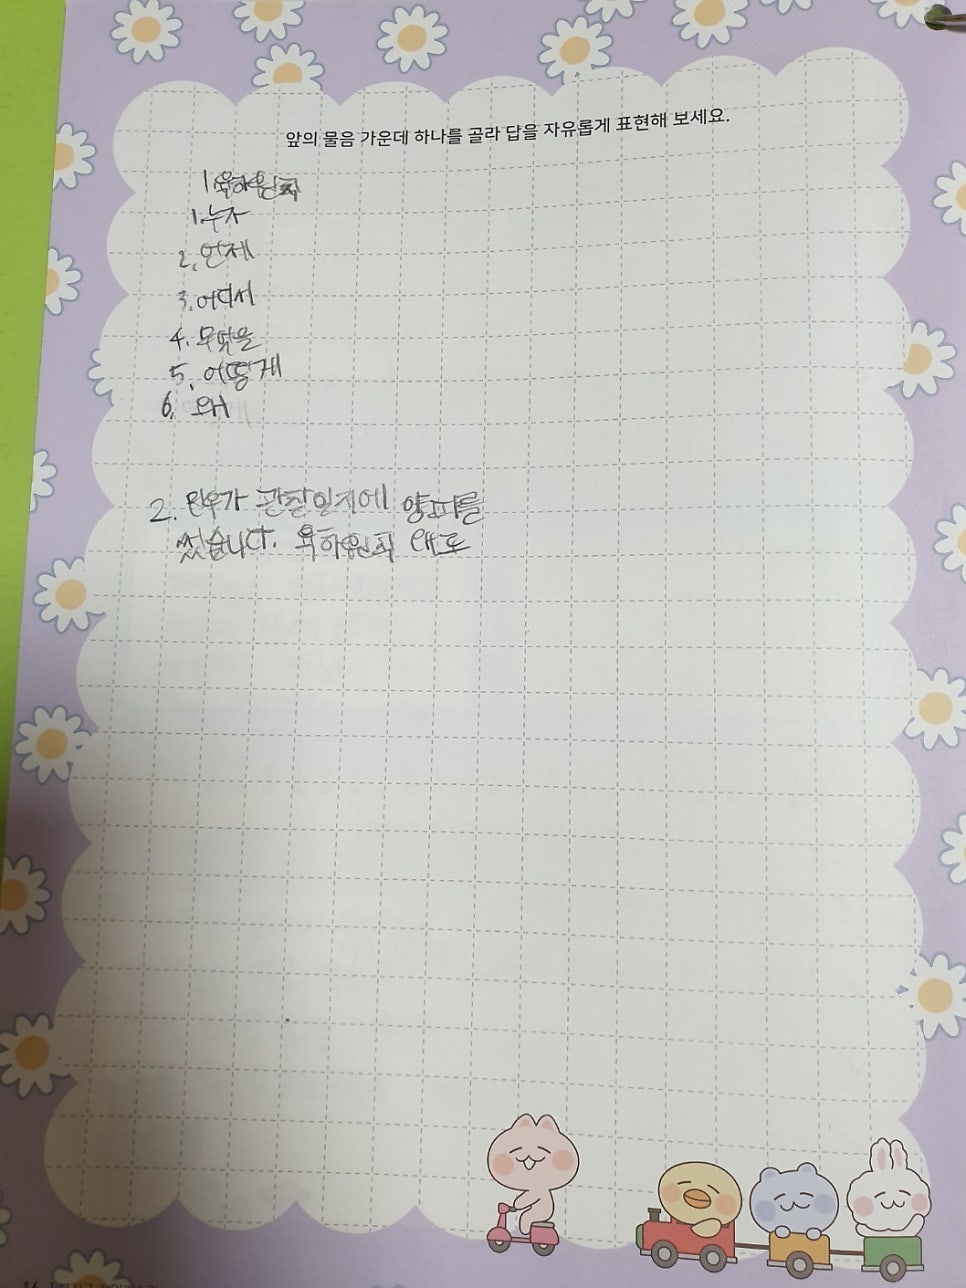 앞의 물음 가운데 하나를 골라 답을 자유롭게 표현해 보세요.
1 육하원칙
1. 누가
2. 언제
3. 어디서
4. 무엇을
5. 어떻게
6. 왜
2. 민우가 관찰일지에 양파를
썼습니다. 육하원칙 대로